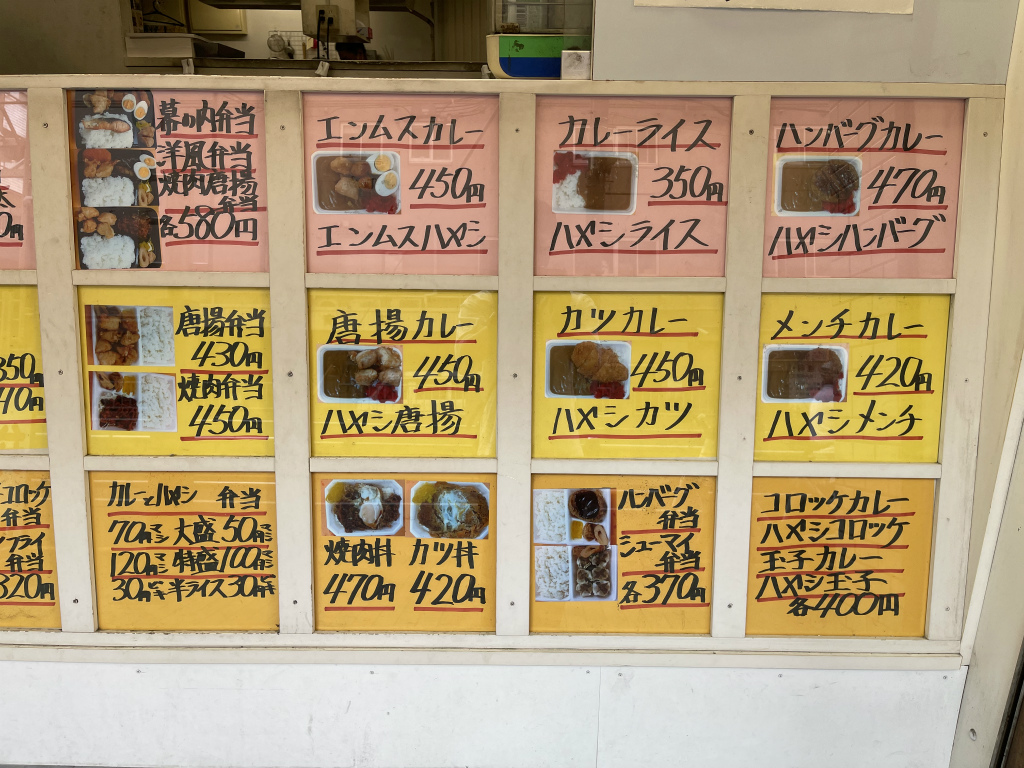 幕の内弁当
洋風弁当
焼肉唐揚
弁当
各580円
エンムスカレー
450円
エンムスハヤシ
カレーライス
350円
ハヤシライス
ハンバーグカレー
470円
ハヤシハンバーグ
唐揚弁当
430円
焼肉弁当
450円
唐揚カレー
450円
ハヤシ唐揚
カツカレー
450円
ハヤシカツ
メンチカレー
420円
ハヤシメンチ
50円
40円
コロッケ
弁当
フライ
弁当
320円
カレーとハヤシ 弁当
70円マシ 大盛 50円マシ
120円マシ 特盛 100円マシ
30円 半ライス 30円
焼肉丼 カツ丼
470円 420円
ハンバーグ
弁当
シューマイ
弁当
各370円
コロッケカレー
ハヤシコロッケ
玉子カレー
ハヤシ玉子
各400円